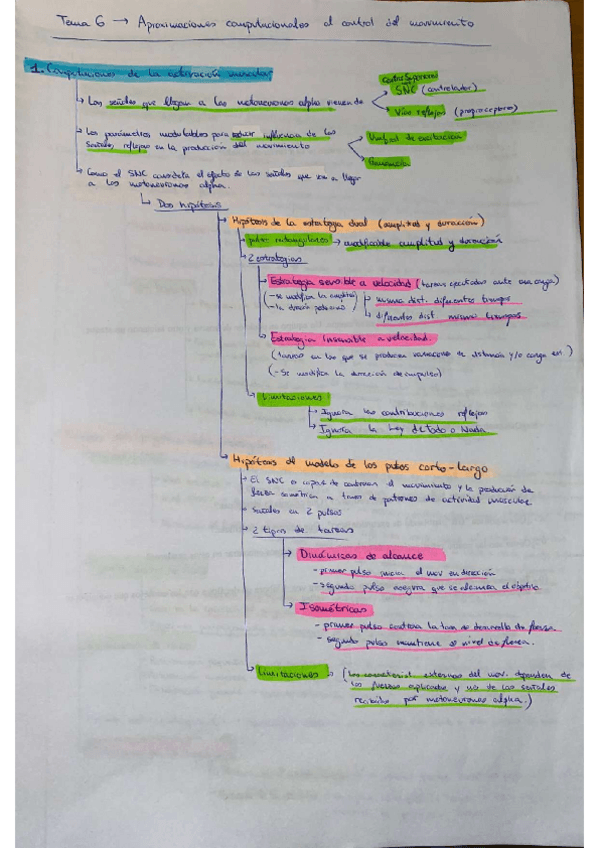 Tema 6 → Aproximaciones computacionales al control del movimiento
1. Computaciones de la activación muscular
Las señales que llegan a las motoneuronas alpha vienen de
Centros Superiores
SNC (controlador)
Vías reflejas (propioceptores)
Los parámetros modulables para influencia de las
señales reflejas en la producción del movimiento
Umbral de excitación
Ganancia
Como el SNC consideta el efecto de las señales que van a llegar
a las motoneuronas alpha.
Dos hipótesis
Hipótesis de la estrategia dual (amplitud y duración)
pulsos rectangulares → modificable amplitud y duración
2 estrategias
Estrategia sensible a velocidad (tareas ejecutadas ante una carga)
(- se modifica la amplitud
- la duración
misma dist. diferentes tiempos
diferentes dist. mismo tiempos
Estrategia insensible a velocidad.
(tareas en las que se producen variaciones de distancia y/o carga ext)
(- Se modifica la duración de impulso)
Limitaciones
Ignora las contribuciones reflejas
Ignora la Ley de todo o Nada
Hipótesis del modelo de los pulsos corto-largo
El SNC es capaz de controlar el movimiento y la producción de
fuerza isométrica a traves de patrones de actividad muscular
en 2 pulsos
2 tipos de tareas
Dinámicas de alcance
- primer pulso inicia el mov en dirección
- segundo pulso asegura que se alcanza el objetivo
Isométricas
- primer pulso controla la tasa de desarrollo de fuerza.
- segundo pulso mantiene el nivel de fuerza.
Limitaciones → (las caracterist. externas del mov. dependen de
las fuerzas aplicadas y no de las señales
recibidas por motoneuronas alpha.)